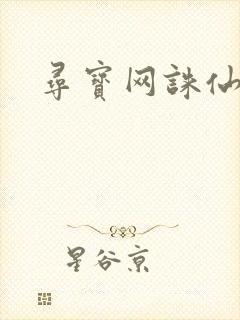 尋寶网誅仙
星谷京